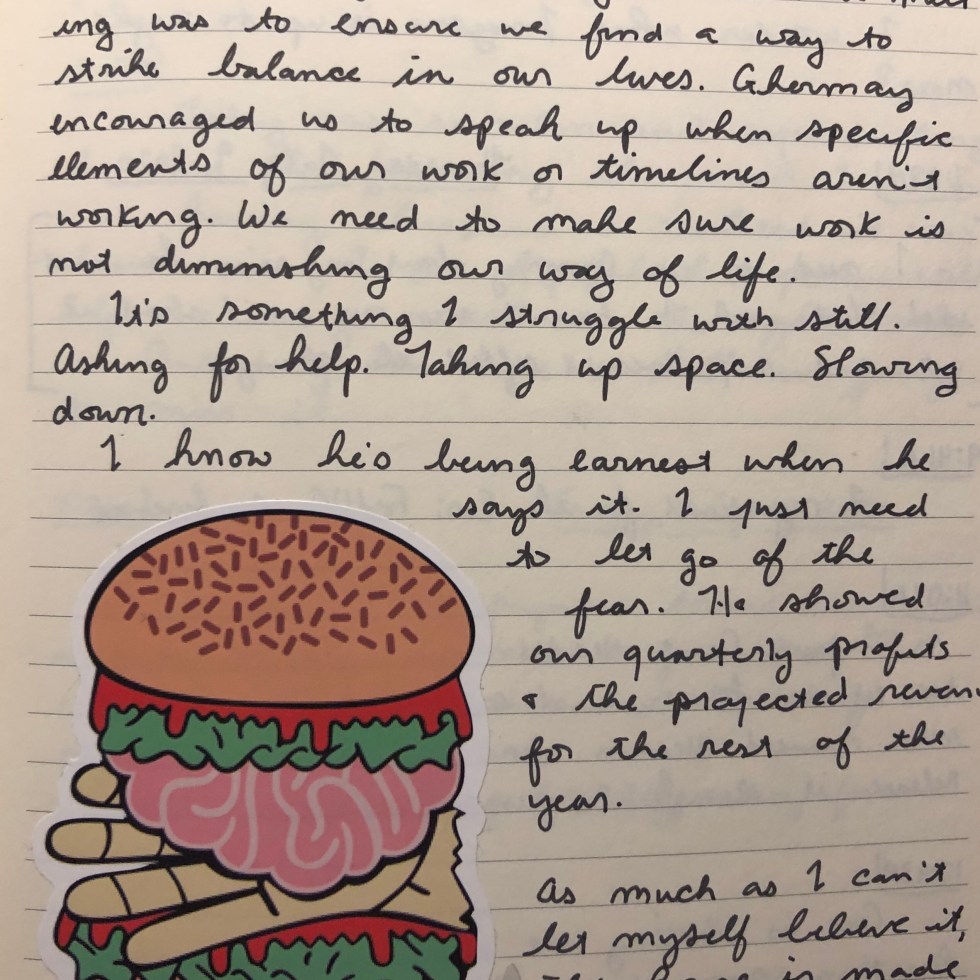 ing was to ensure we find a way to
strike balance in our lives. Ghermay
encouraged us to speak up when specific
elements of our work or timelines aren't
working. We need to make sure work is
not diminishing our way of life.
It's something I struggle with still.
Asking for help. Taking up space. Slowing
down.
I know he's being earnest when he
says it. I just need
to let go of the
fear. He showed
our quarterly profits
& the projected reven
for the rest of the
year.
As much as I can't
let myself believe it,
is made